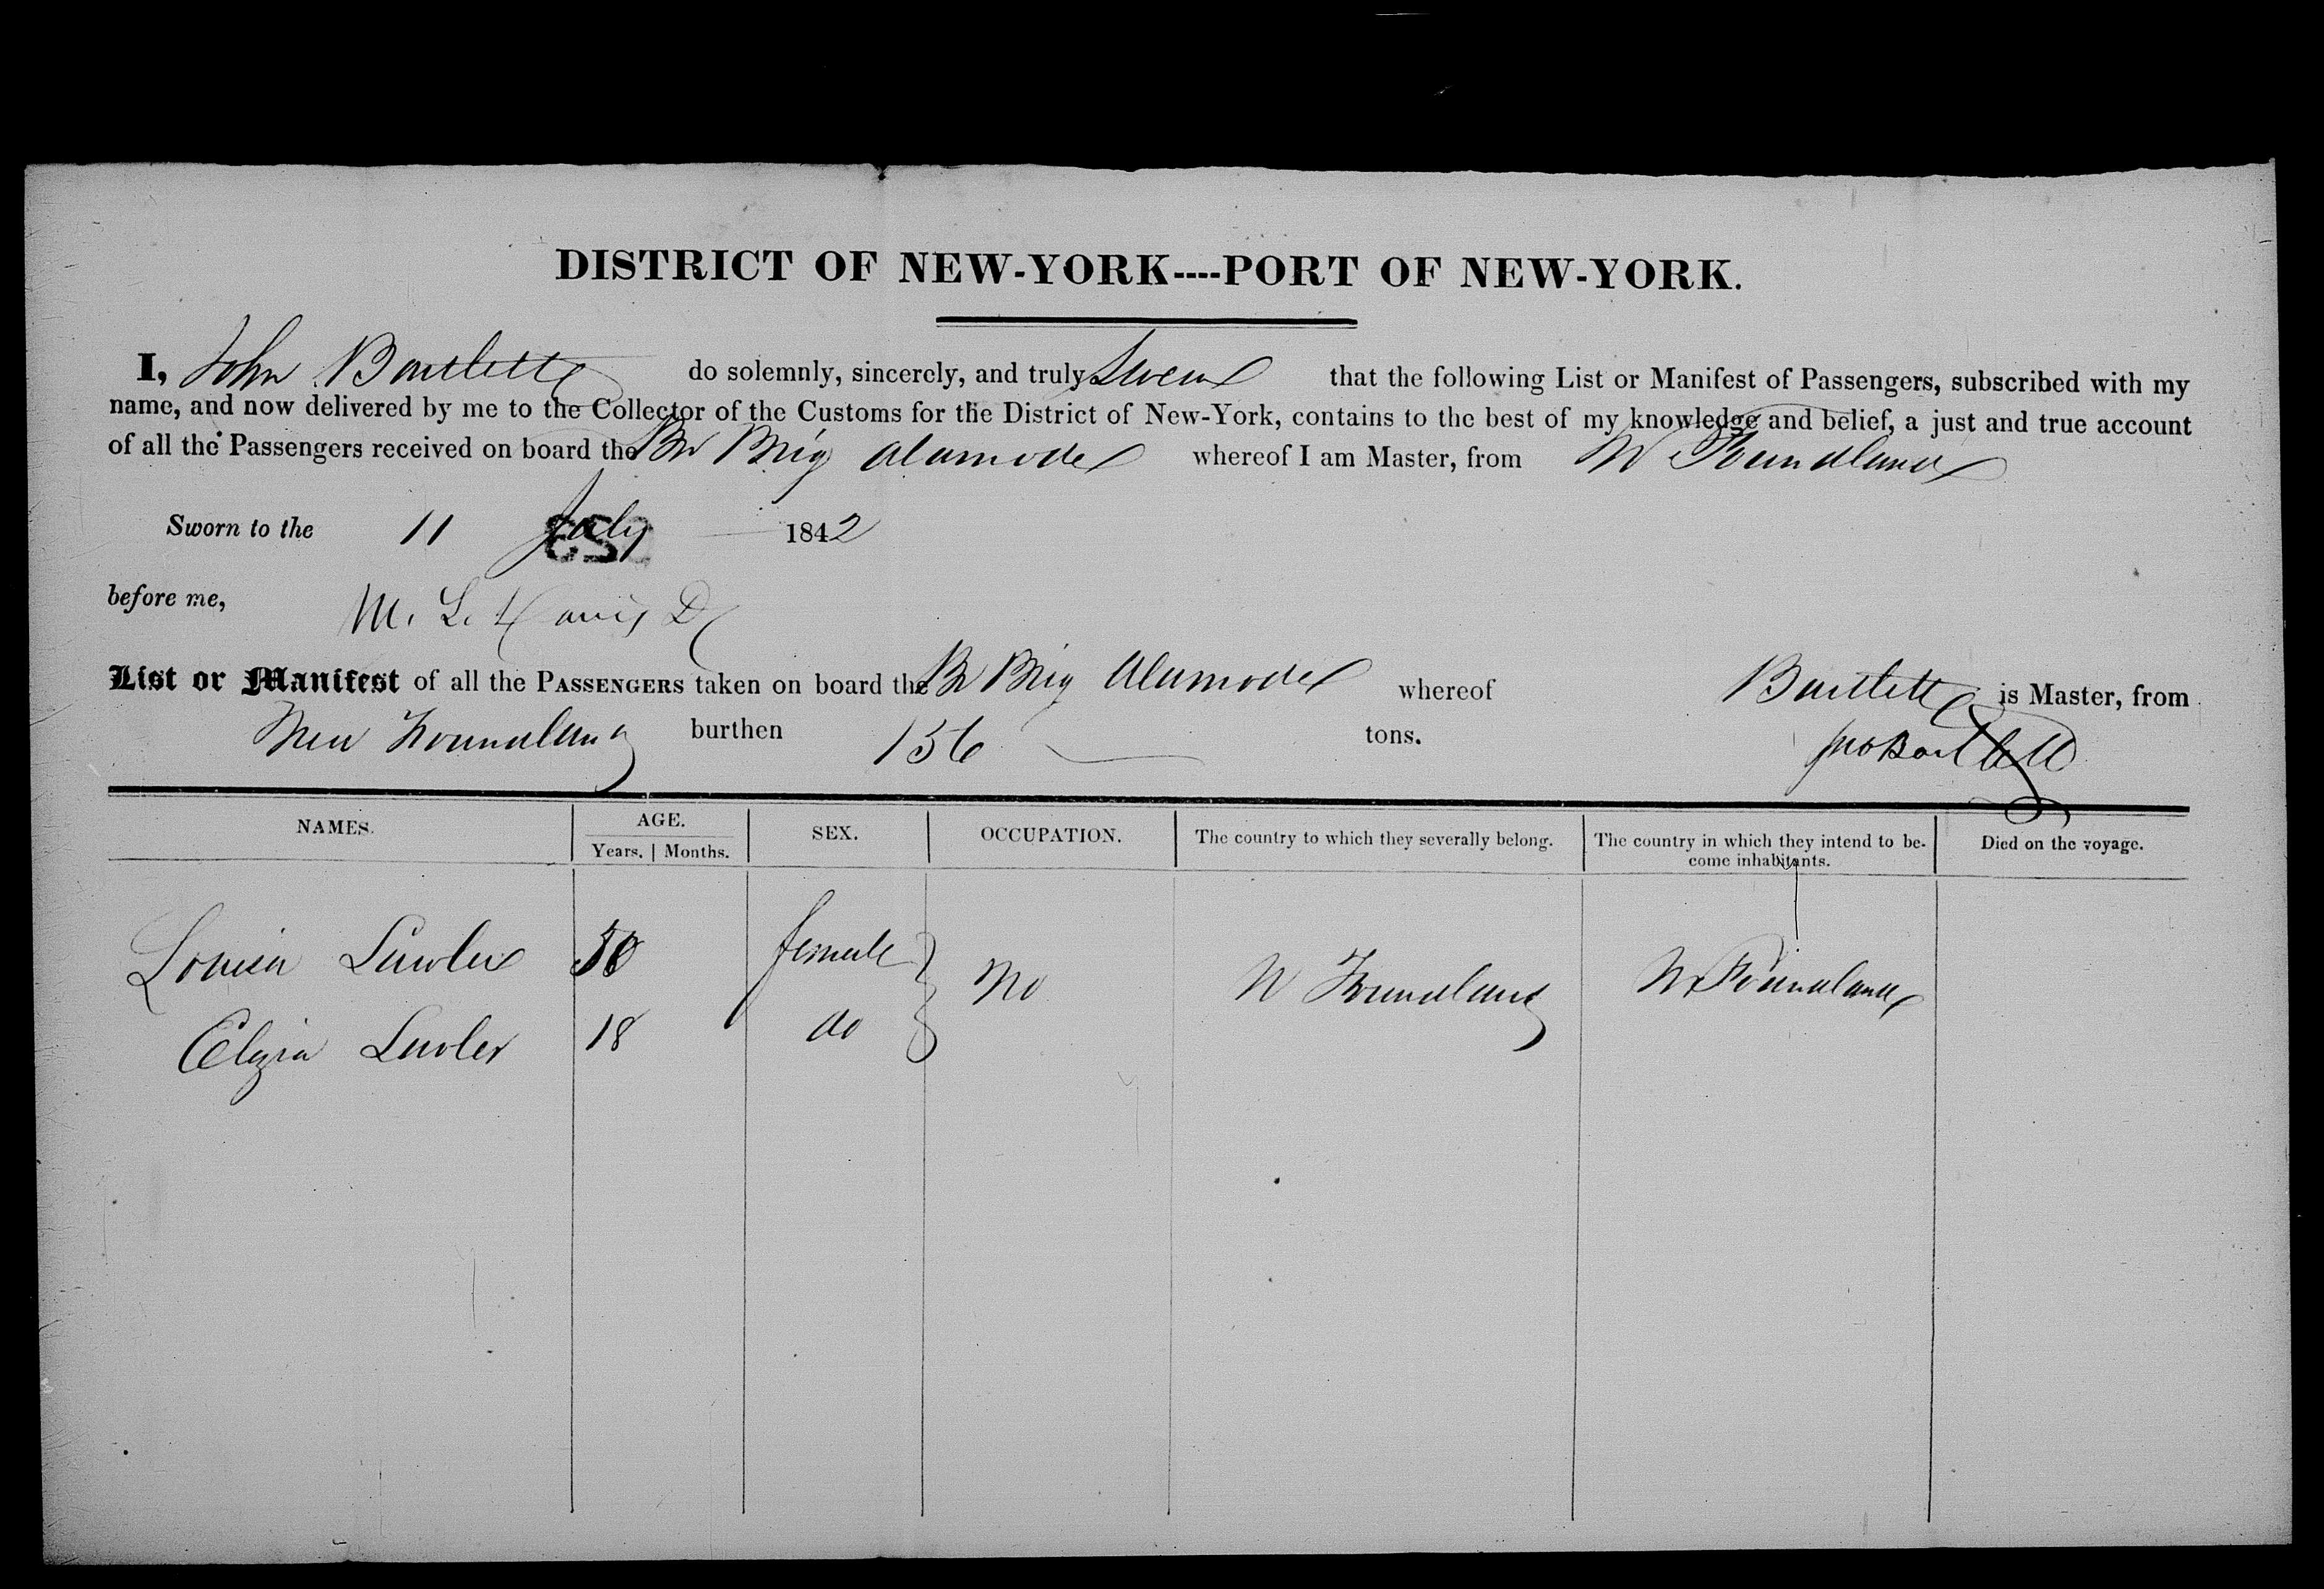 DISTRICT OF NEW-YORK----PORT OF NEW-YORK.
I, John Bartlett do solemnly, sincerely, and truly Swear that the following List or Manifest of Passengers, subscribed with my
name, and now delivered by me to the Collector of the Customs for the District of New-York, contains to the best of my knowledge and belief, a just and true account
of all the Passengers received on board the Br Brig Alamode whereof I am Master, from N Foundland
Sworn to the 11 July 1842
before me, M. L. Davis
List or Manifest of all the PASSENGERS taken on board the Br Brig Alamode whereof Bartlett is Master, from
New Foundland burthen 156 tons. Jno Bartlett
NAMES. AGE. SEX. OCCUPATION. The country to which they severally belong. The country in which they intend to be- Died on the voyage.
Years. | Months. come inhabitants.
Louisa Lawler female
No N Foundland N Foundland
Eliza Lawler 18 do